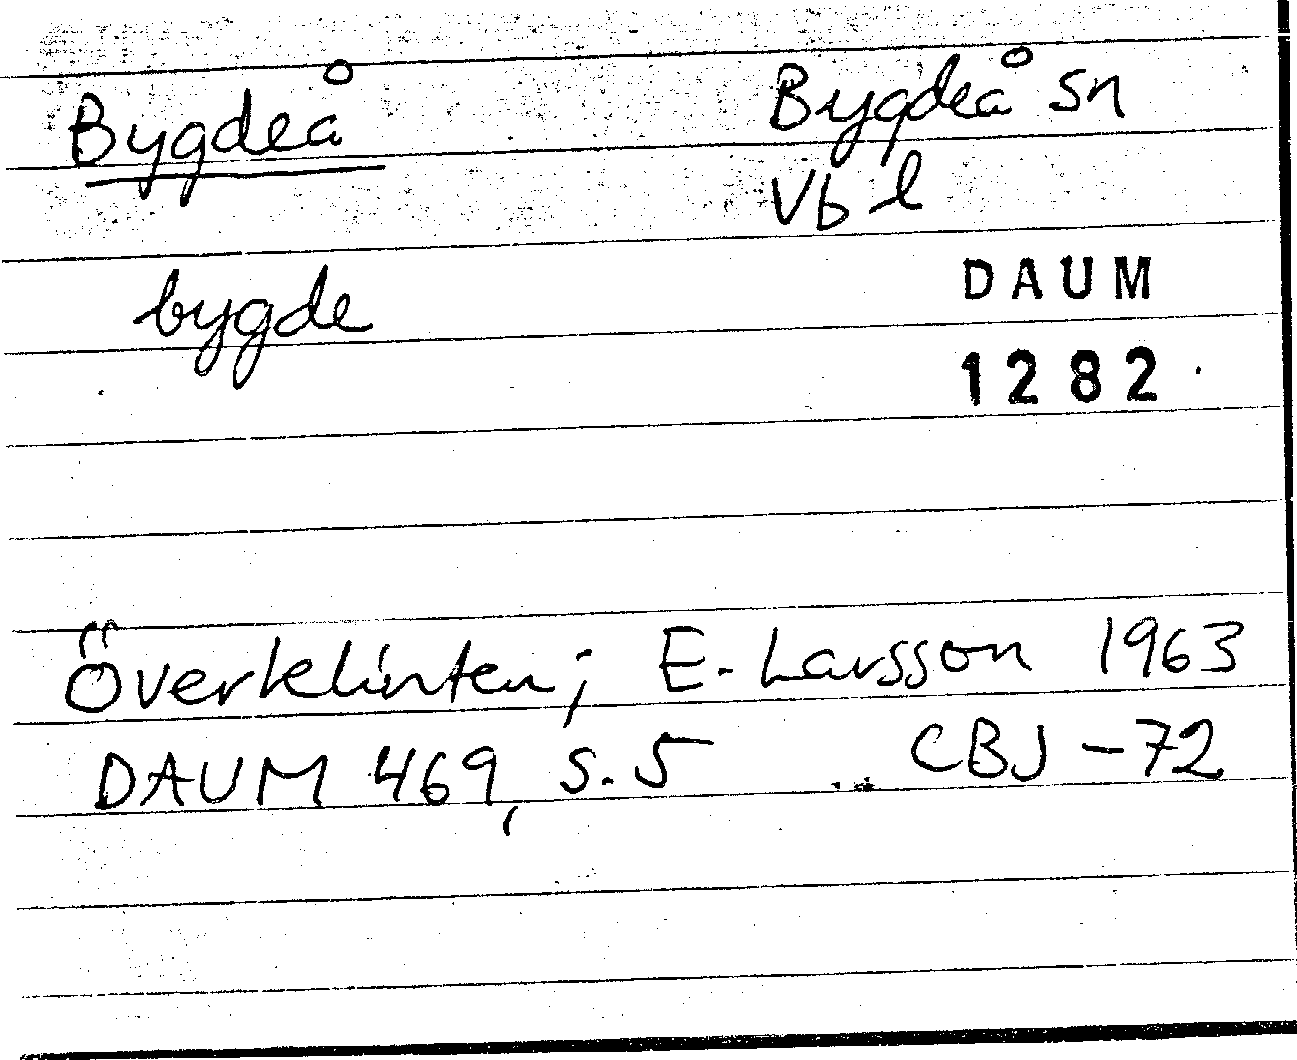 Bygdeå
Bygdeå sn
Vb l
bygde
DAUM
1282
Överklinten; E. Larsson 1963
DAUM 469, s. 5 CBJ -72